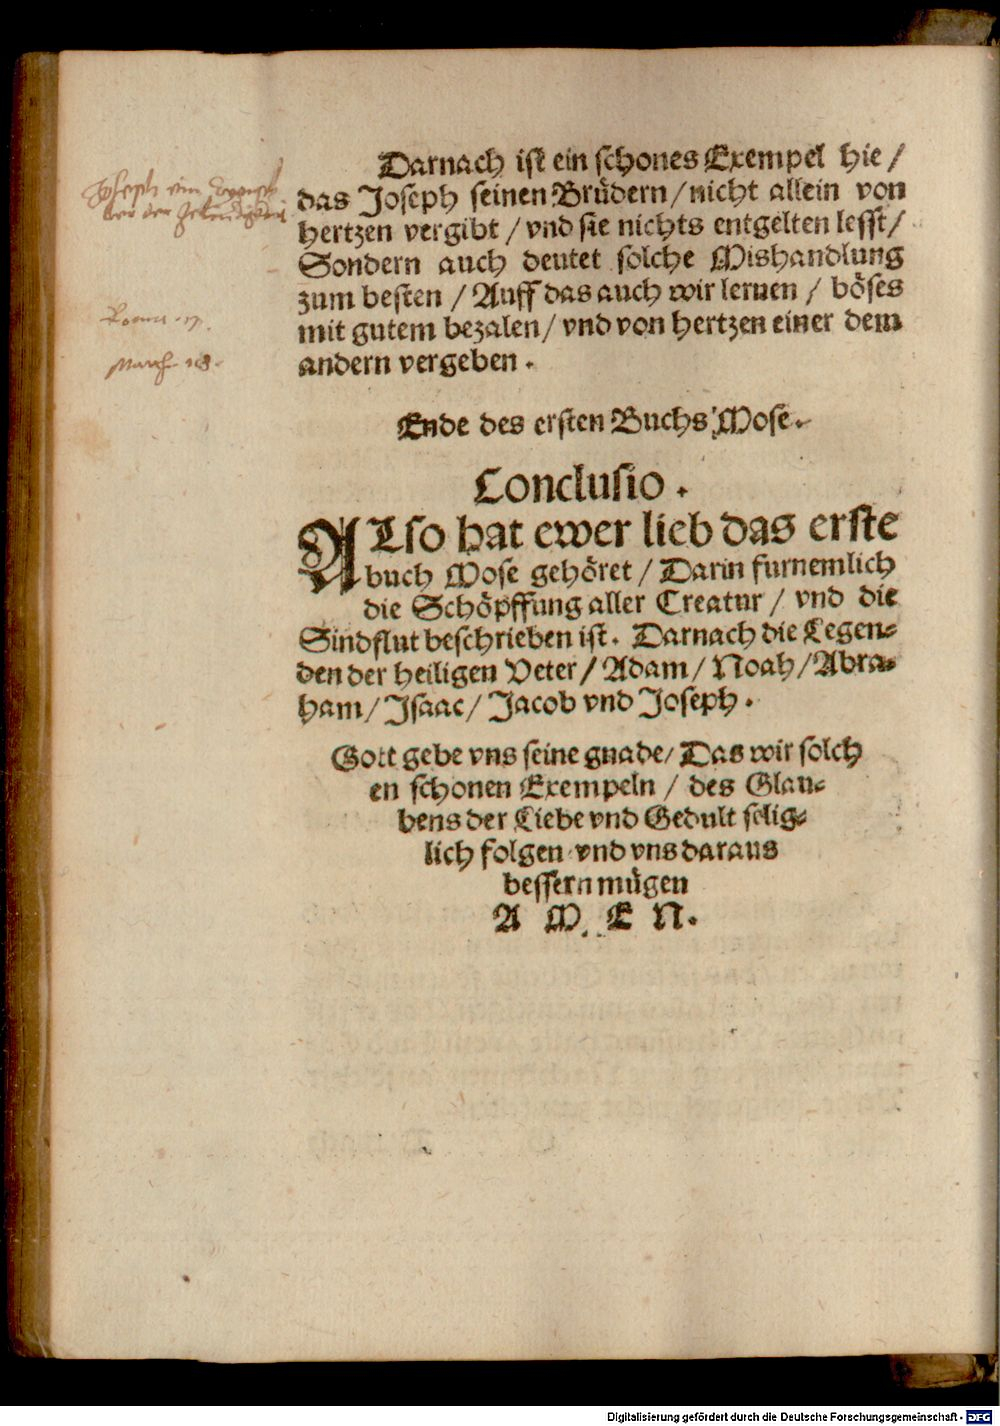 Darnach ist ein schones Exempel hie /
das Joseph seinen Brüdern / nicht allein von
hertzen vergibt / vnd sie nichts entgelten lesst /
Sondern auch deutet solche Mishandlung
zum besten / Auff das auch wir lernen / böses
mit gutem bezalen / vnd von hertzen einer dem
andern vergeben .
Joseph ein
der
Roma.
Math. 18.
Ende des ersten Buchs Mose.
Conclusio .
ALso hat ewer lieb das erste
buch Mose gehöret / Darin furnemlich
die Schöpffung aller Creatur / vnd die
Sindflut beschrieben ist. Darnach die Legen-
den der heiligen Veter / Adam / Noah / Abra-
ham / Isaac / Jacob vnd Joseph .
Gott gebe vns seine gnade / Das wir solch
en schonen Exempeln / des Glau-
bens der Liebe vnd Gedult selig-
lich folgen vnd vns daraus
bessern mügen
A M E N.
Digitalisierung gefördert durch die Deutsche Forschungsgemeinschaft - DFG